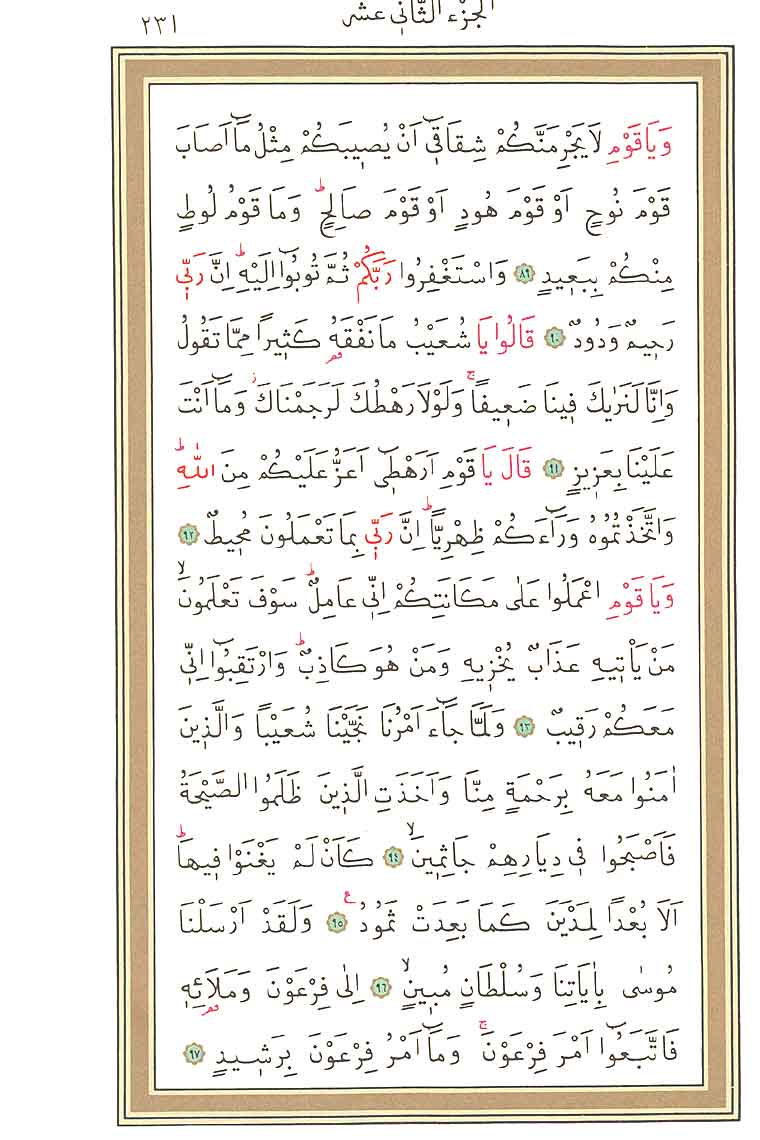 الجزء الثاني عشر ٢٣١
وَيَا قَوْمِ لَا يَجْرِمَنَّكُمْ شِقَاقٖٓي اَنْ يُصٖيبَكُمْ مِثْلُ مَٓا اَصَابَ
قَوْمَ نُوحٍ اَوْ قَوْمَ هُودٍ اَوْ قَوْمَ صَالِحٍؕ وَمَا قَوْمُ لُوطٍ
مِنْكُمْ بِبَعٖيدٍ ﴿٨٩﴾ وَاسْتَغْفِرُوا رَبَّكُمْ ثُمَّ تُوبُٓوا اِلَيْهِؕ اِنَّ رَبّٖي
رَحٖيمٌ وَدُودٌ ﴿٩٠﴾ قَالُوا يَا شُعَيْبُ مَا نَفْقَهُ كَثٖيرًا مِمَّا تَقُولُ
وَاِنَّا لَنَرٰيكَ فٖينَا ضَعٖيفًاۚ وَلَوْلَا رَهْطُكَ لَرَجَمْنَاكَؗ وَمَٓا اَنْتَ
عَلَيْنَا بِعَزٖيزٍ ﴿٩١﴾ قَالَ يَا قَوْمِ اَرَهْطٖٓي اَعَزُّ عَلَيْكُمْ مِنَ اللّٰهِؕ
وَاتَّخَذْتُمُوهُ وَرَٓاءَكُمْ ظِهْرِيًّاؕ اِنَّ رَبّٖي بِمَا تَعْمَلُونَ مُحٖيطٌ ﴿٩٢﴾
وَيَا قَوْمِ اعْمَلُوا عَلٰى مَكَانَتِكُمْ اِنّٖي عَامِلٌؕ سَوْفَ تَعْلَمُونَۙ
مَنْ يَأْتٖيهِ عَذَابٌ يُخْزٖيهِ وَمَنْ هُوَ كَاذِبٌؕ وَارْتَقِبُٓوا اِنّٖي
مَعَكُمْ رَقٖيبٌ ﴿٩٣﴾ وَلَمَّا جَٓاءَ اَمْرُنَا نَجَّيْنَا شُعَيْبًا وَالَّذٖينَ
اٰمَنُوا مَعَهُ بِرَحْمَةٍ مِنَّا وَاَخَذَتِ الَّذٖينَ ظَلَمُوا الصَّيْحَةُ
فَاَصْبَحُوا فٖي دِيَارِهِمْ جَاثِمٖينَۙ ﴿٩٤﴾ كَاَنْ لَمْ يَغْنَوْا فٖيهَاؕ
اَلَا بُعْدًا لِمَدْيَنَ كَمَا بَعِدَتْ ثَمُودُ ﴿٩٥﴾ وَلَقَدْ اَرْسَلْنَا
مُوسٰى بِاٰيَاتِنَا وَسُلْطَانٍ مُبٖينٍۙ ﴿٩٦﴾ اِلٰى فِرْعَوْنَ وَمَلَائِهٖ
فَاتَّبَعُٓوا اَمْرَ فِرْعَوْنَۚ وَمَٓا اَمْرُ فِرْعَوْنَ بِرَشٖيدٍ ﴿٩٧﴾